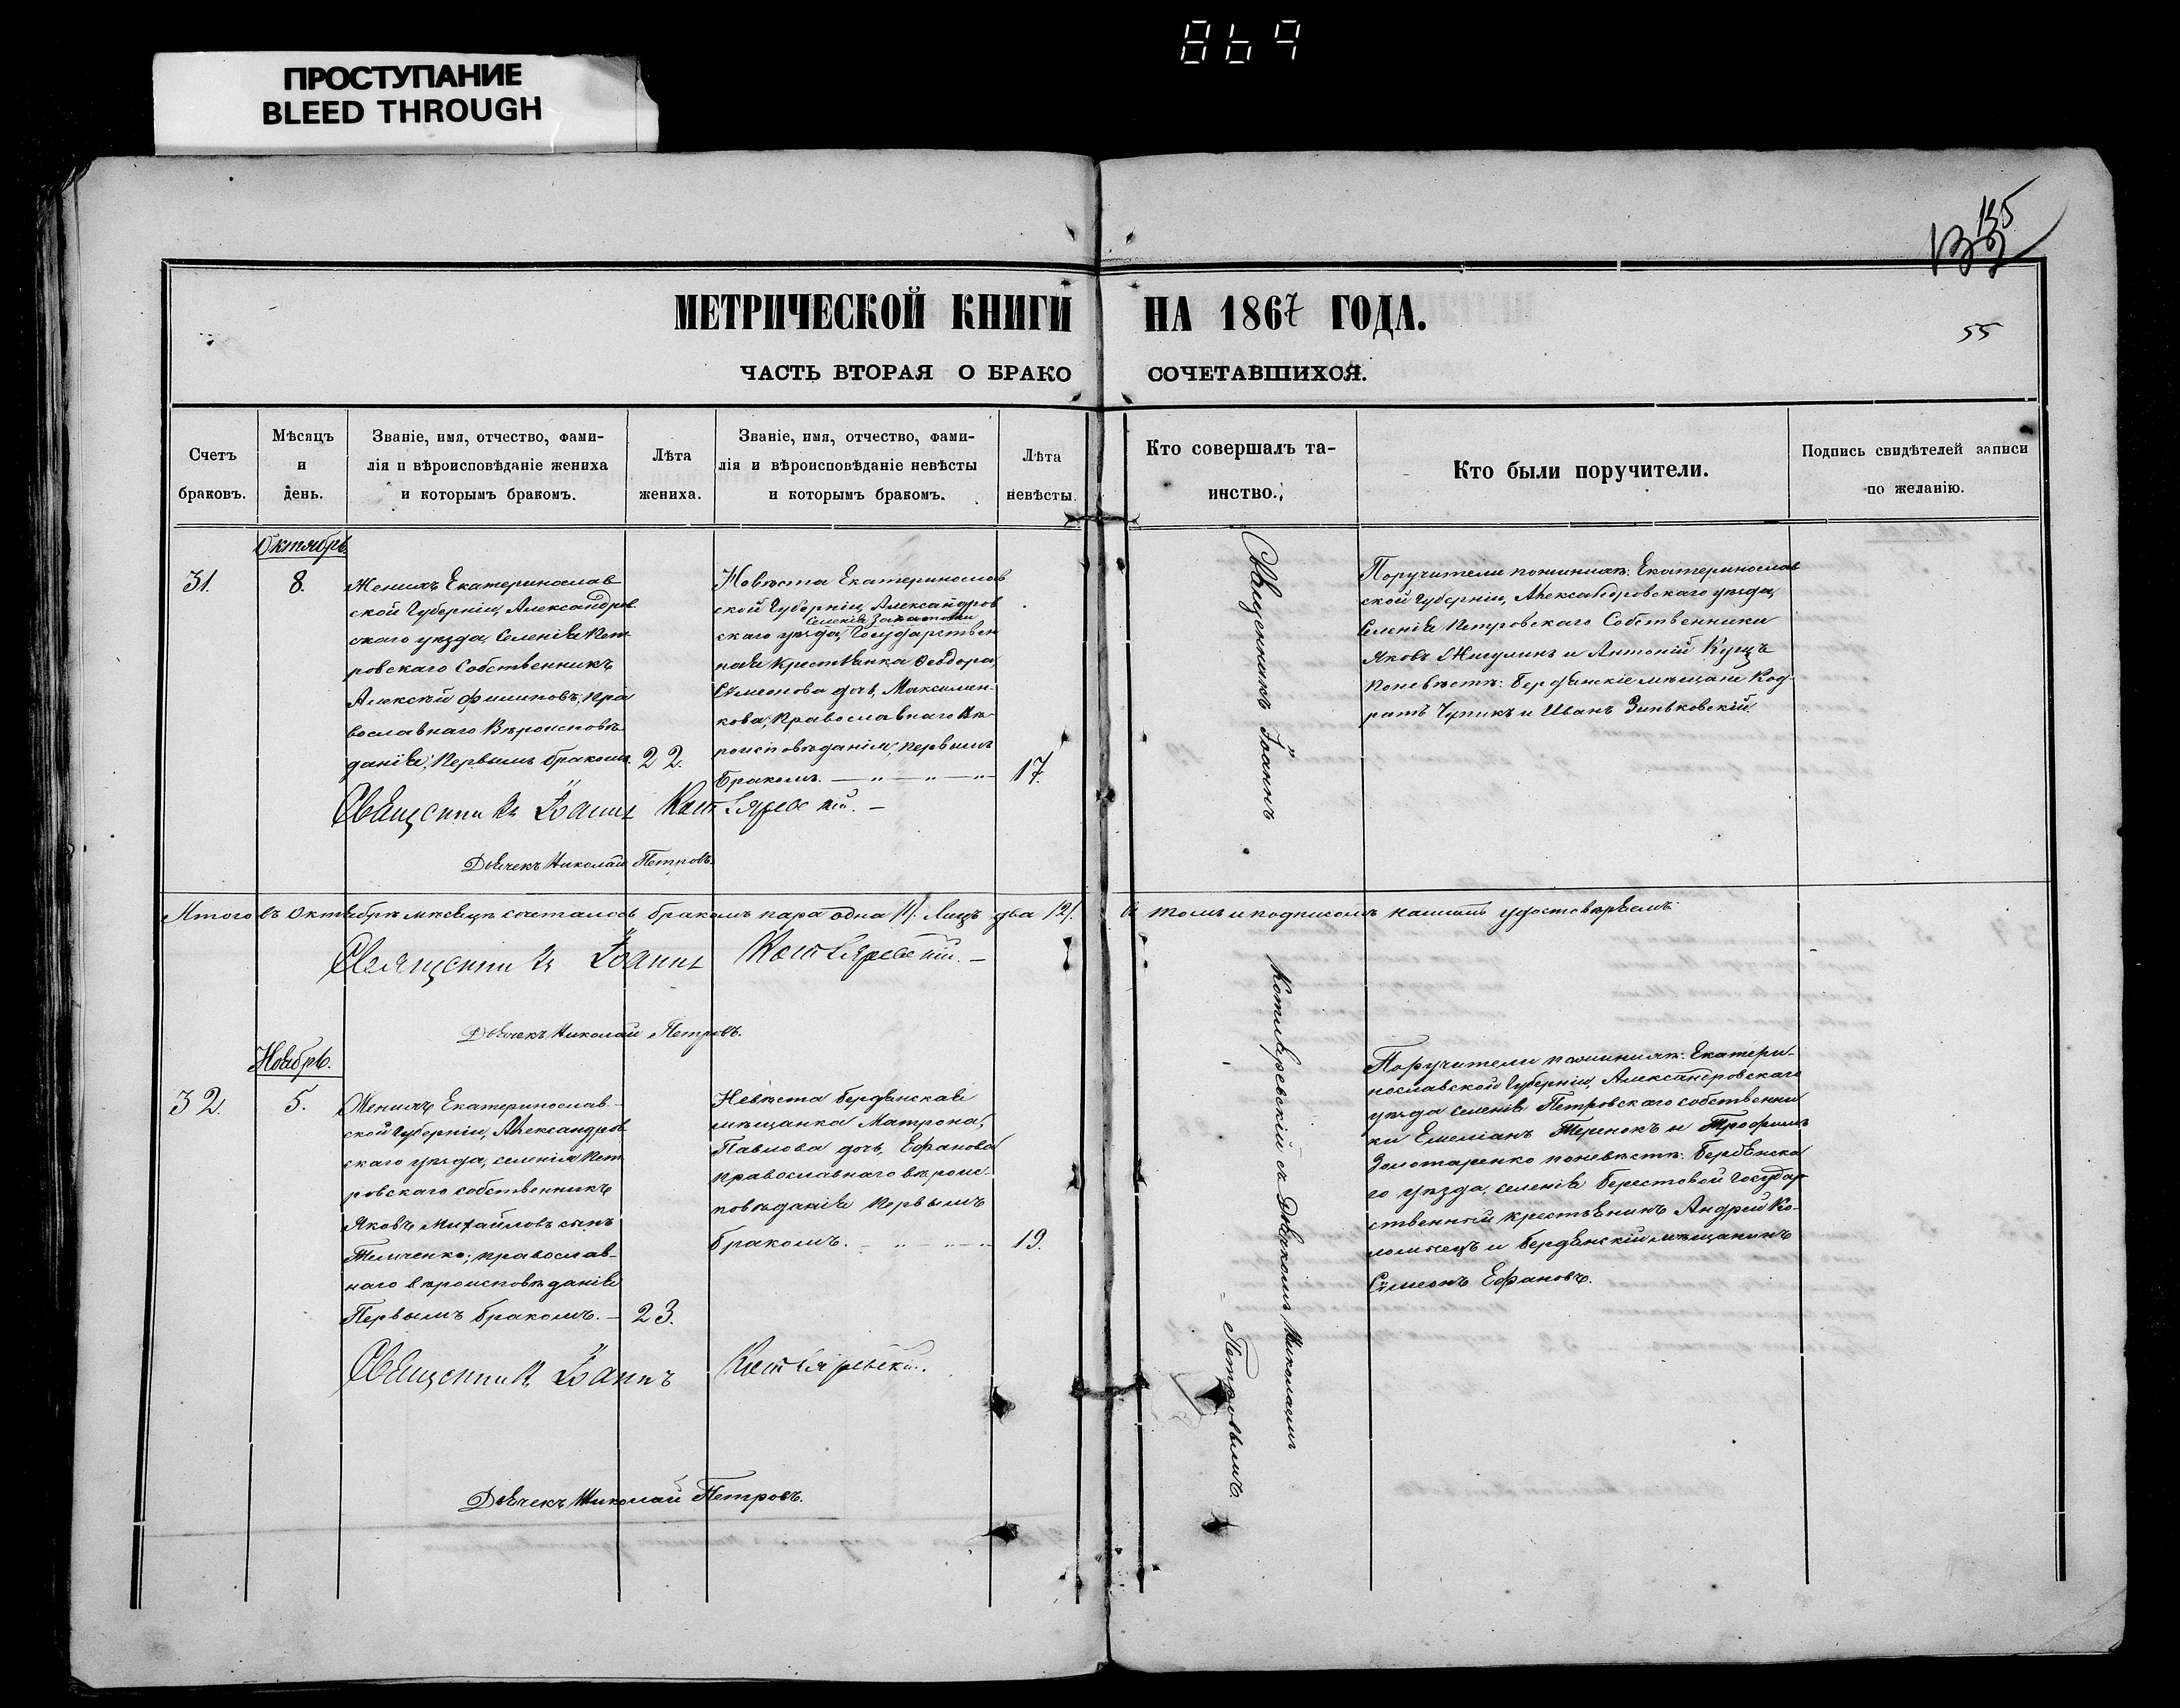 869
ПРОСТУПАНИЕ
BLEED THROUGH
135
МЕТРИЧЕСКОЙ КНИГИ НА 1867 ГОДА.
55
ЧАСТЬ ВТОРАЯ О БРАКОСОЧЕТАВШИХСЯ.
Счетъ
браковъ.
Мѣсяцъ
и
день.
Званіе, имя, отчество, фами-
лія и вѣроисповѣданіе жениха
и которымъ бракомъ.
Лѣта
жениха.
Званіе, имя, отчество, фами-
лія и вѣроисповѣданіе невѣсты
и которымъ бракомъ.
Лѣта
невѣсты.
Кто совершалъ та-
инство.
Кто были поручители.
Подпись свидѣтелей записи
по желанію.
Октябрь
31.
8.
Женихъ Екатеринослав
ской Губерніи, Александров
скаго уѣзда, Селенія Пет
ровскаго Собственникъ
Алексѣй Филиповъ, Пра
вославнаго Вѣроисповѣ
данія, Первымъ бракомъ.
22.
Невѣста Екатеринослав
ской Губерніи Александров
селенія
скаго уѣзда, Государствен
ная крестьянка Ѳеодора,
Сѵмеонова дочь, Максимен-
кова, Православнаго Вѣ-
роисповѣданія, первымъ
Бракомъ.
17.
Священникъ Іоаннъ
Поручители по женихѣ: Екатеринослав
ской Губерніи, Александровскаго уѣзда,
Селенія Петровскаго Собственники
Яковъ Жигулинъ и Антоній Куцъ
По невѣстѣ: Бердянскіе мѣщане Код
ратъ Чупикъ и Иванъ Зиньковскій.
Священникъ Іоаннъ Котляревскій.
Дьячекъ Николай Петровъ.
Итого въ Октябрѣ мѣсяцѣ сочеталось бракомъ пара одна /1/. Лицъ два /2/. въ томъ и подписомъ нашимъ удостовѣряемъ.
Священникъ Іоаннъ Котляревскій.
Дьячекъ Николай Петровъ.
Ноябрь.
32.
5.
Женихъ Екатеринослав-
ской Губерніи, Александров
скаго уѣзда, селенія Пет
ровскаго собственникъ
Яковъ Михайловъ сынъ
Теличенко; православ-
наго вѣроисповѣданія
Первымъ бракомъ.
23.
Невѣста Бердянская
мѣщанка Матрона,
Павлова дочь, Ефанова
православнаго вѣроис-
повѣданія Первымъ
бракомъ.
19.
Котляревскій съ Дьячкомъ Николаемъ
Петровымъ.
Поручители по женихѣ: Екатери-
нославской Губерніи, Александровскаго
уѣзда селенія Петровскаго собственни
ки Емеліанъ Теренокъ и Трофимъ
Золотаренко по невѣстѣ: Бердянска
го уѣзда, селенія Берестовой Государ-
ственный крестьянинъ Андрей Ко-
ломіецъ и Бердянскій мѣщанинъ
Сѵмеонъ Ефановъ.
Священникъ Іоаннъ Котляревскій.
Дьячекъ Николай Петровъ.